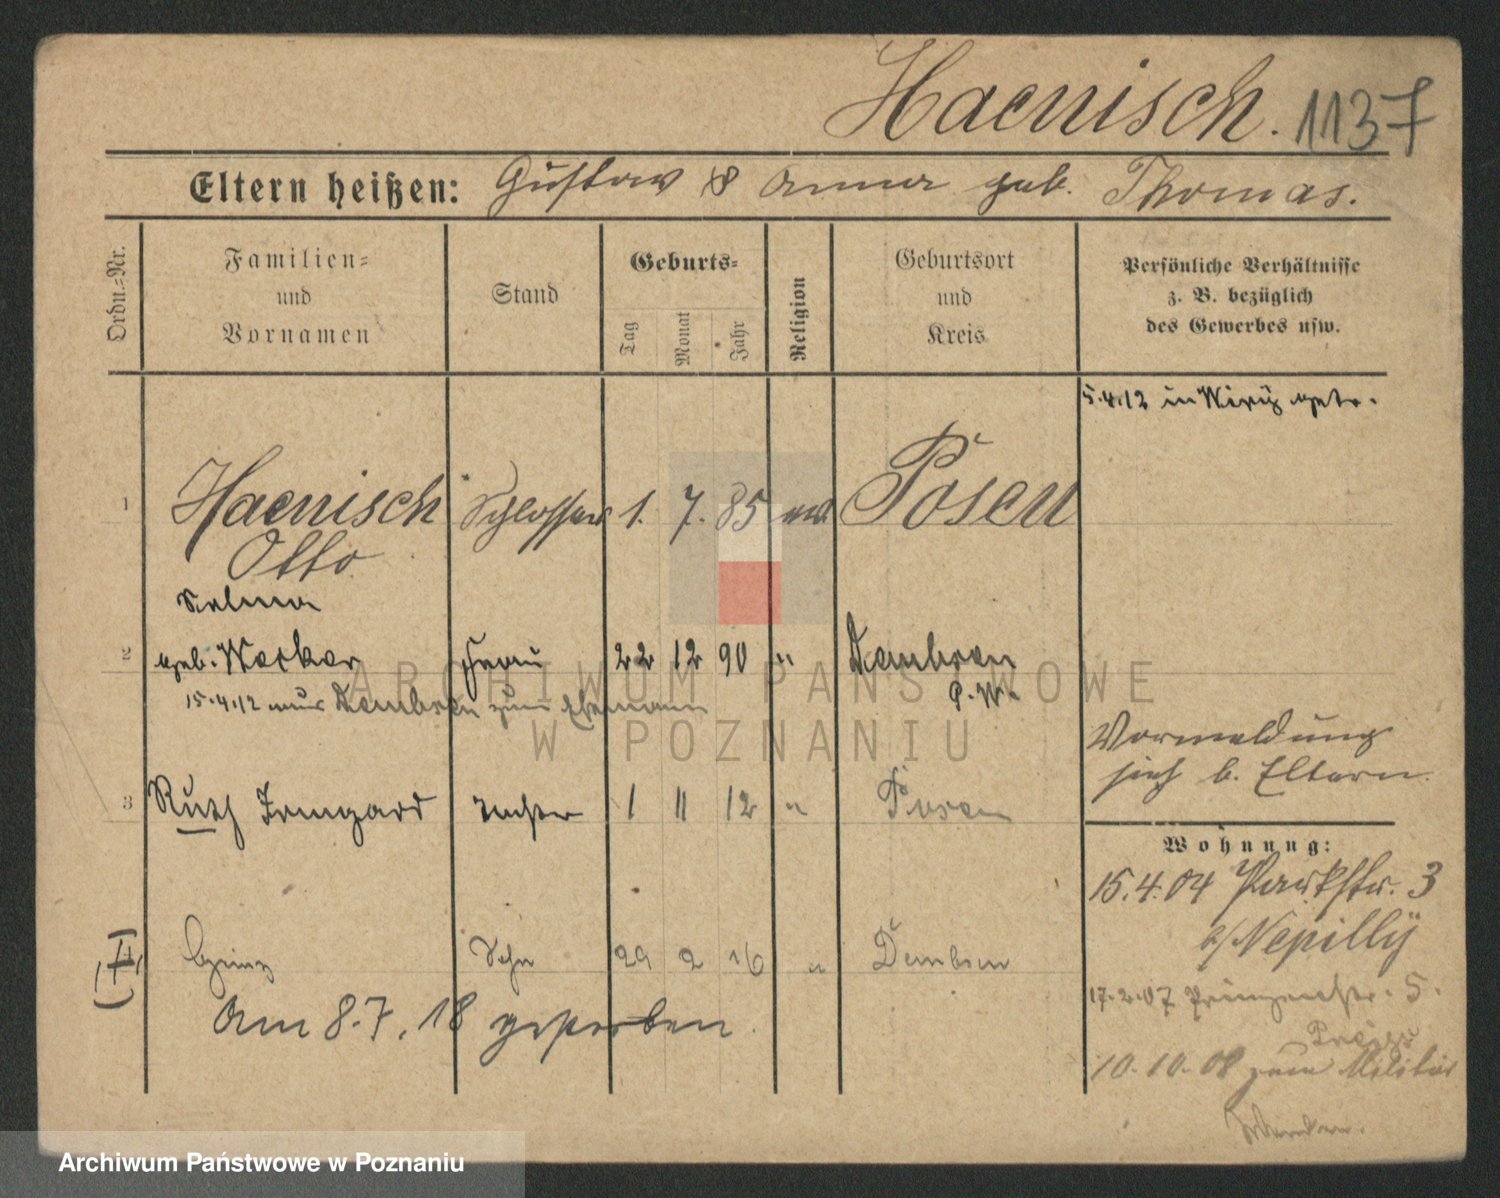 Haenisch. 1137
Eltern heißen: Gustav & Anna geb. Thomas.
Ordn.-Nr.
Familien-
und
Vornamen
Stand
Geburts-
Tag
Monat
Jahr
Religion
Geburtsort
und
Kreis
Persönliche Verhältnisse
z. B. bezüglich
des Gewerbes usw.
5.4.12 in Wirsitz getr.
1 Haenisch Schlosser 1. 7. 85 ev. Posen
Otto
Selma
2 geb. Frau 22 12 90 " Dembsen
P. W.
15.4.12 aus Dembsen zum Ehemann
Vormeldung
sieh b. Eltern.
3 Ruth Irmgard Tochter 1 11 12 " Posen
Wohnung:
15.4.04 Parkstr. 3
b/Nepilly
Heinz Sohn 29 2 16 " Dembsen
17.2.07 Prinzenstr. 5.
Am 8.7.18 gestorben.
10.10.08 zum Militär
ARCHIWUM PAŃSTWOWE
W POZNANIU
Archiwum Państwowe w Poznaniu